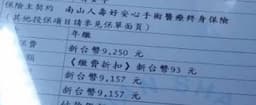 保險主契約 南山人壽好安心手術醫療終身保險
(其他投保項目請參見保單面頁)
年繳
費 新台幣9,250 元
《繳費折扣》新台幣93 元
新台幣9,157 元
新台幣9,157 元